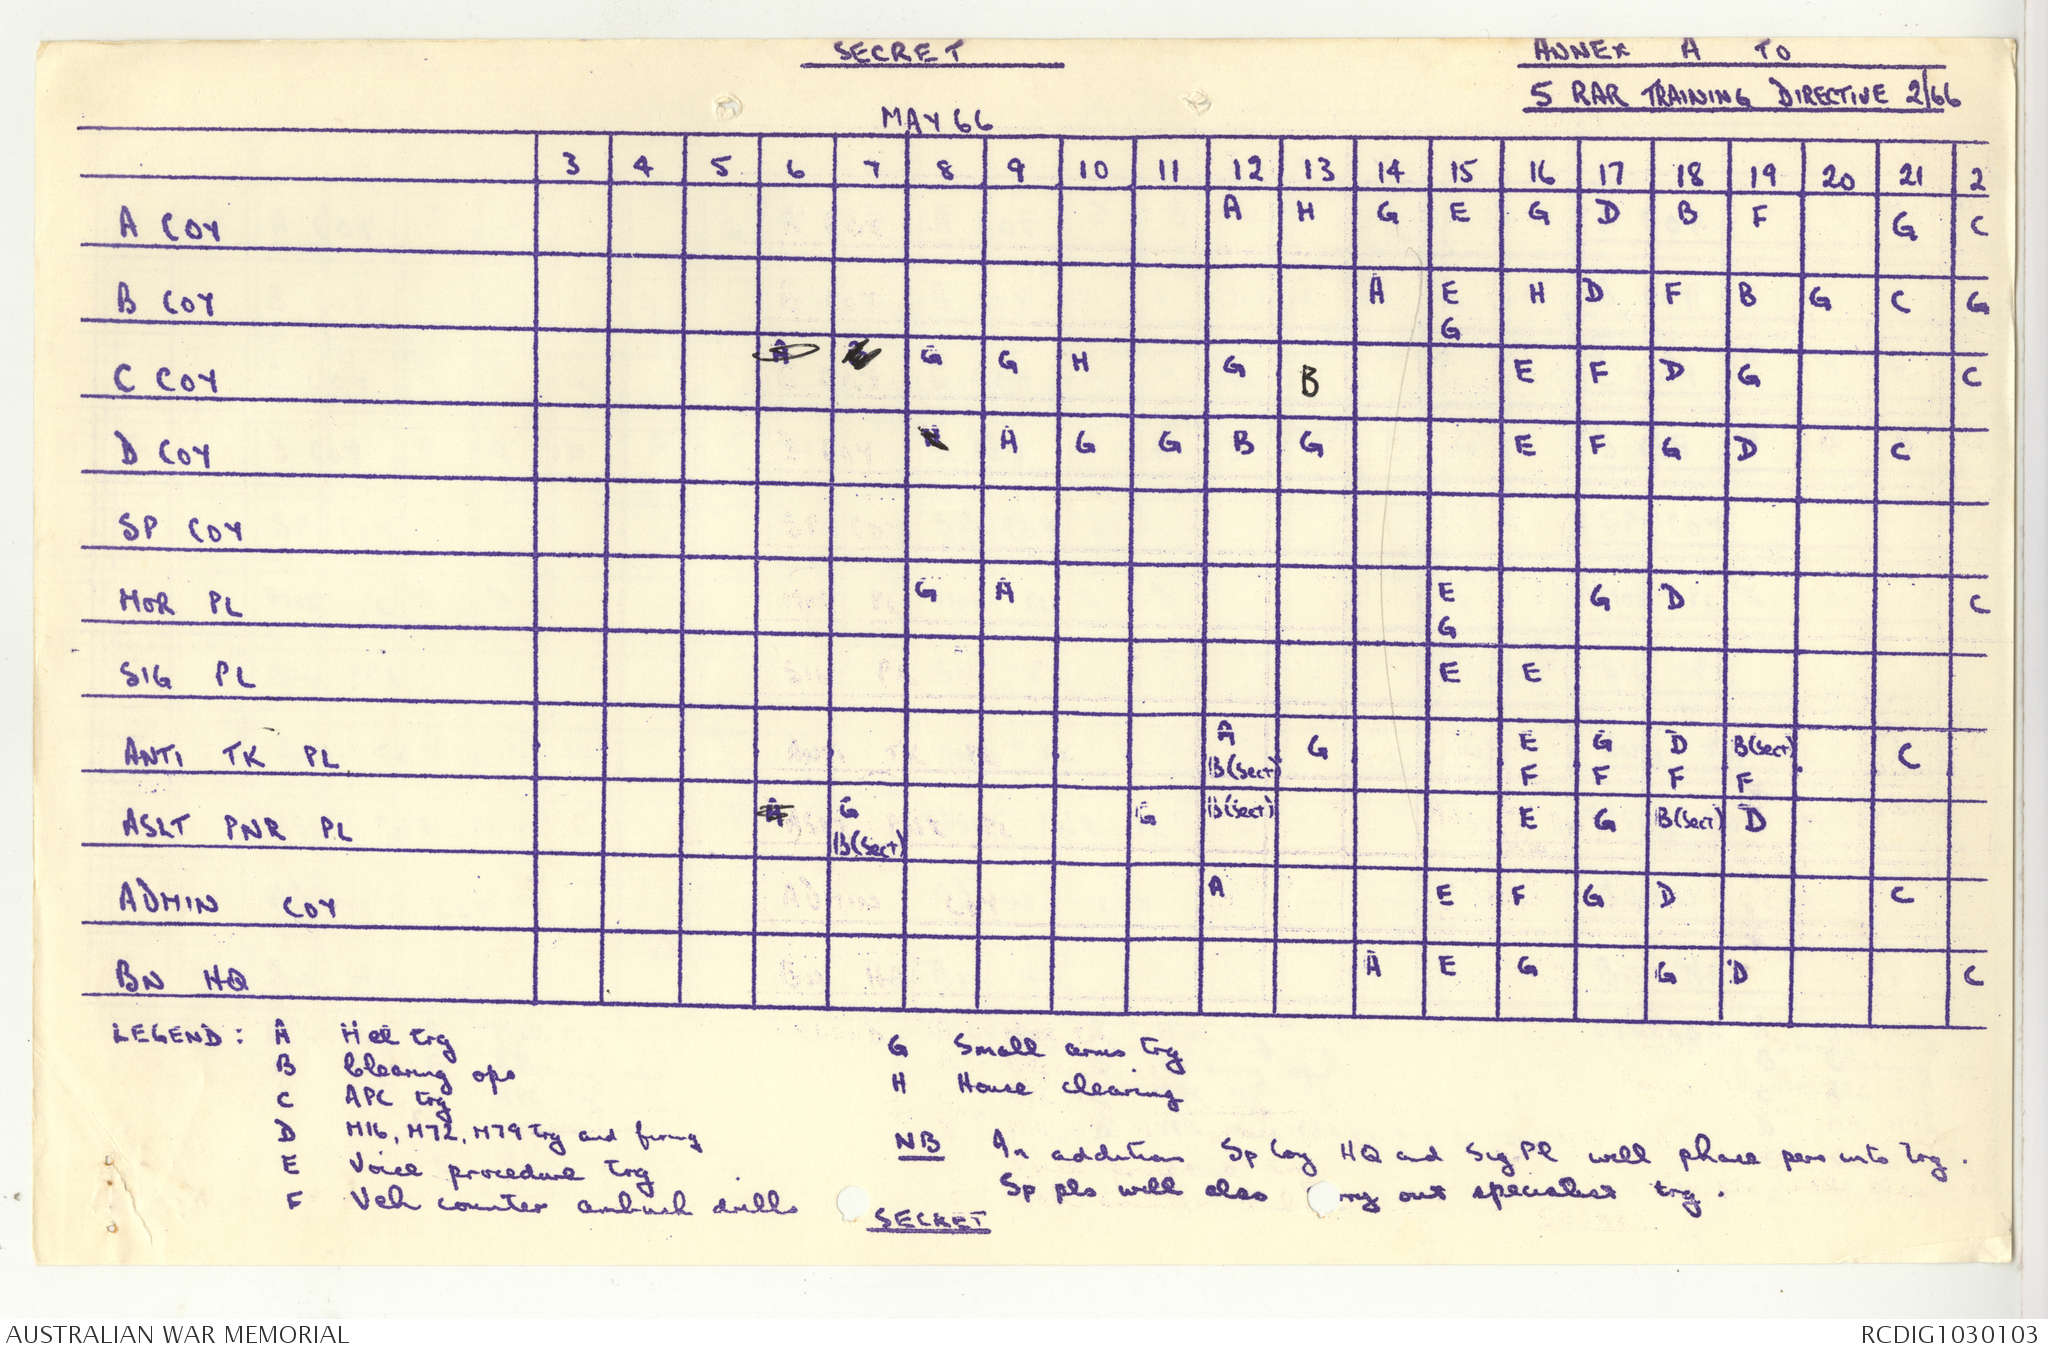 SECRET
ANNEX A TO
5 RAR TRAINING DIRECTIVE 2/66
MAY 66
3 4 5 6 7 8 9 10 11 12 13 14 15 16 17 18 19 20 21 2
A COY A H G E G D B F G C
B COY A E G H D F B G C G
C COY A G G H G B E F D G C
D COY A G G B G E F G D C
SP COY
MOR PL G A E G G D C
SIG PL E E
ANTI TK PL A B(Sect) G E F G F D F B(Sect) F C
ASLT PNR PL A G B(Sect) G B(Sect) E G B(Sect) D
ADMIN COY A E F G D C
BN HQ A E G G D C
LEGEND: A Hel trg
B Clearing ops
C APC trg
D M16, M72, M79 trg and firing
E Voice procedure trg
F Veh counter ambush drills
G Small arms trg
H House clearing
NB In addition Sp Coy HQ and Sig Pl will phase pers into trg.
Sp pls will also rry out specialist trg.
SECRET
AUSTRALIAN WAR MEMORIAL
RCDIG1030103